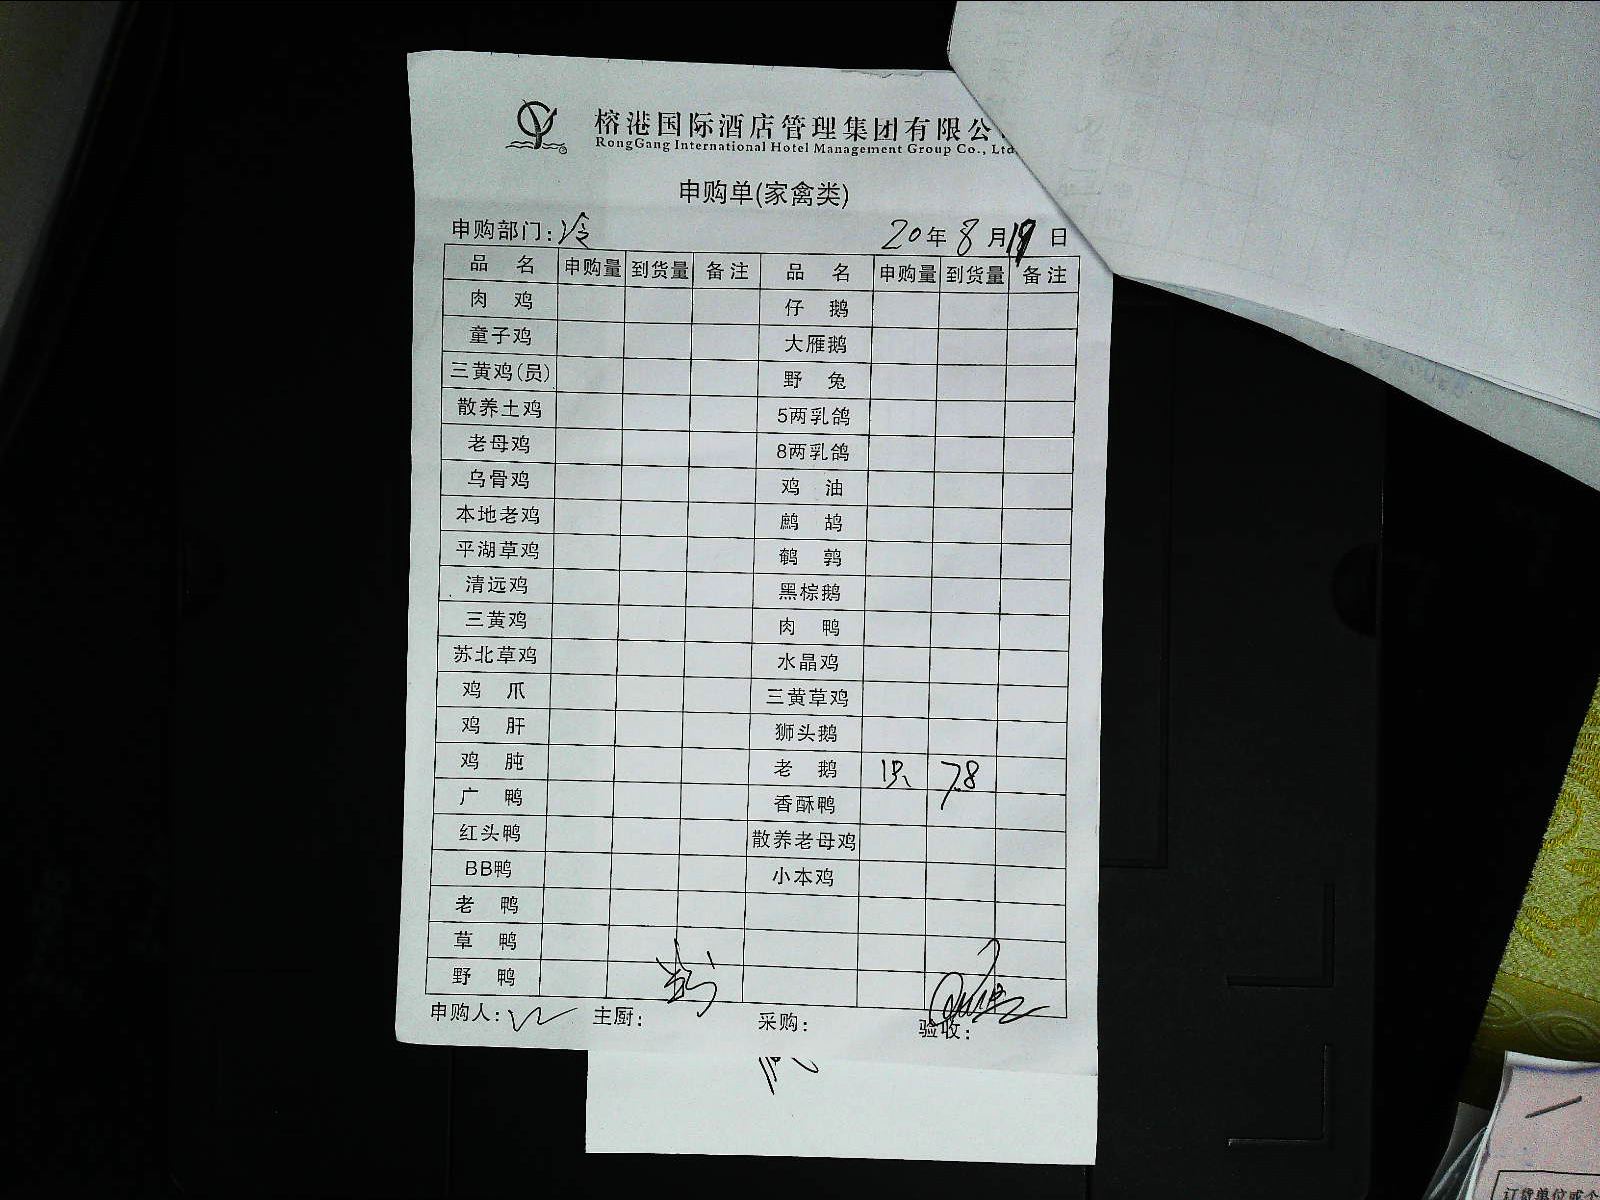 榕港国际酒店管理集团有限公
RongGang International Hotel Management Group Co., Ltd
申购单(家禽类)
申购部门:冷 20年8月19日
品 名 申购量 到货量 备注 品 名 申购量 到货量 备注
肉 鸡 仔 鹅
童子鸡 大雁鹅
三黄鸡(员) 野 兔
散养土鸡 5两乳鸽
老母鸡 8两乳鸽
乌骨鸡 鸡 油
本地老鸡 鹧 鸪
平湖草鸡 鹌 鹑
清远鸡 黑棕鹅
三黄鸡 肉 鸭
苏北草鸡 水晶鸡
鸡 爪 三黄草鸡
鸡 肝 狮头鹅
鸡 肫 老 鹅 1只 7.8
广 鸭 香酥鸭
红头鸭 散养老母鸡
BB鸭 小本鸡
老 鸭
草 鸭
野 鸭
申购人: 主厨: 采购: 验收:
订货单位或个